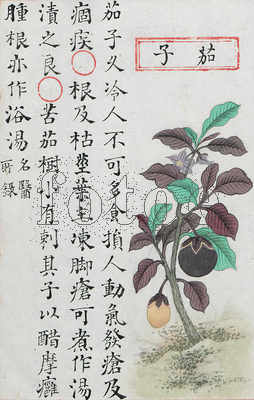 茄子
茄子久冷人不可多食損人動氣發瘡及
痼疾○根及枯莖葉主凍脚瘡可煮作湯
漬之良○苦茄樹小有刺其子以醋摩癰
腫根亦作浴湯名醫所錄
fotoe